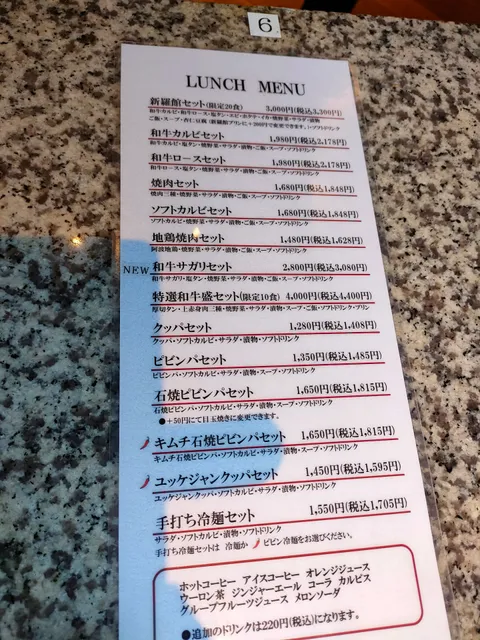 6
LUNCH MENU
新羅館セット(限定20食) 3,000円(税込3,300円)
和牛カルビ・和牛ロース・塩タン・エビ・ホタテ・イカ・焼野菜・サラダ・漬物
ご飯・スープ・杏仁豆腐
和牛カルビセット 1,980円(税込2,178円)
和牛カルビ・塩タン・焼野菜・サラダ・漬物・ご飯・スープ・ソフトドリンク
和牛ロースセット 1,980円(税込2,178円)
和牛ロース・塩タン・焼野菜・サラダ・漬物・ご飯・スープ・ソフトドリンク
焼肉セット 1,680円(税込1,848円)
焼肉三種・焼野菜・サラダ・漬物・ご飯・スープ・ソフトドリンク
ソフトカルビセット 1,680円(税込1,848円)
ソフトカルビ・焼野菜・サラダ・漬物・ご飯・スープ・ソフトドリンク
地鶏焼肉セット 1,480円(税込1,628円)
阿波地鶏・焼野菜・サラダ・漬物・ご飯・スープ・ソフトドリンク
NEW 和牛サガリセット 2,800円(税込3,080円)
和牛サガリ・塩タン・焼野菜・サラダ・漬物・ご飯・スープ・ソフトドリンク
特選和牛盛セット(限定10食) 4,000円(税込4,400円)
厚切タン・上赤身肉三種・焼野菜・サラダ・漬物・ご飯・スープ・ソフトドリンク・プリン
クッパセット 1,280円(税込1,408円)
クッパ・ソフトカルビ・サラダ・漬物・ソフトドリンク
ビビンバセット 1,350円(税込1,485円)
ビビンバ・ソフトカルビ・サラダ・漬物・スープ・ソフトドリンク
石焼ビビンバセット 1,650円(税込1,815円)
石焼ビビンバ・ソフトカルビ・サラダ・漬物・スープ・ソフトドリンク
●+50円にて目玉焼きに変更できます。
キムチ石焼ビビンバセット 1,650円(税込1,815円)
キムチ石焼ビビンバ・ソフトカルビ・サラダ・漬物・スープ・ソフトドリンク
ユッケジャンクッパセット 1,450円(税込1,595円)
ユッケジャンクッパ・ソフトカルビ・サラダ・漬物・ソフトドリンク
手打ち冷麺セット 1,550円(税込1,705円)
サラダ・ソフトカルビ・漬物・ソフトドリンク
手打ち冷麺セットは 冷麺か ビビン冷麺をお選びください。
ホットコーヒー アイスコーヒー オレンジジュース
ウーロン茶 ジンジャーエール コーラ カルピス
グループフルーツジュース メロンソーダ
●追加のドリンクは220円(税込)になります。